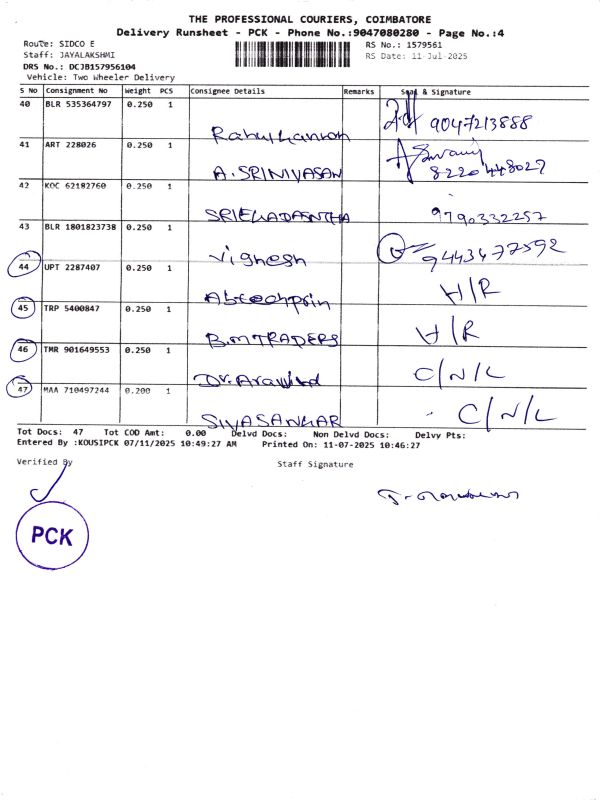 THE PROFESSIONAL COURIERS, COIMBATORE
Delivery Runsheet - PCK - Phone No.:9047080280 - Page No.:4
Route: SIDCO E RS No.: 1579561
Staff: JAYALAKSHMI RS Date: 11-Jul-2025
DRS No.: DCJB157956104
Vehicle: Two Wheeler Delivery
S No Consignment No Weight PCS Consignee Details Remarks Seal & Signature
40 BLR 535364797 0.250 1
Rahulkannan 9047213888
41 ART 228026 0.250 1
A.SRINIVASAN 8220448027
42 KOC 62182760 0.250 1
9790332257
43 BLR 1801823738 0.250 1
Vighesh 9443477592
44 UPT 2287407 0.250 1
H/R
45 TRP 5400847 0.250 1
B.M TRADERS H/R
46 TMR 901649553 0.250 1
Dr.Aravind C/N/L
47 MAA 710497244 0.200 1
SIVASANKAR C/N/L
Tot Docs: 47 Tot COD Amt: 0.00 Delvd Docs: Non Delvd Docs: Delvy Pts:
Entered By :KOUSIPCK 07/11/2025 10:49:27 AM Printed On: 11-07-2025 10:46:27
Verified By Staff Signature
PCK